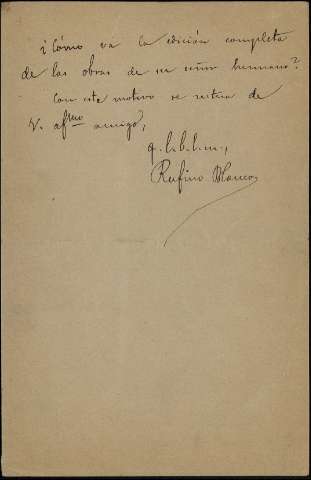 ¿Cómo va la edición completa
de las obras de su señor hermano?
Con este motivo se reitera de
V. afmo amigo,
q. l. b. l. m.,
Rufino Blanco